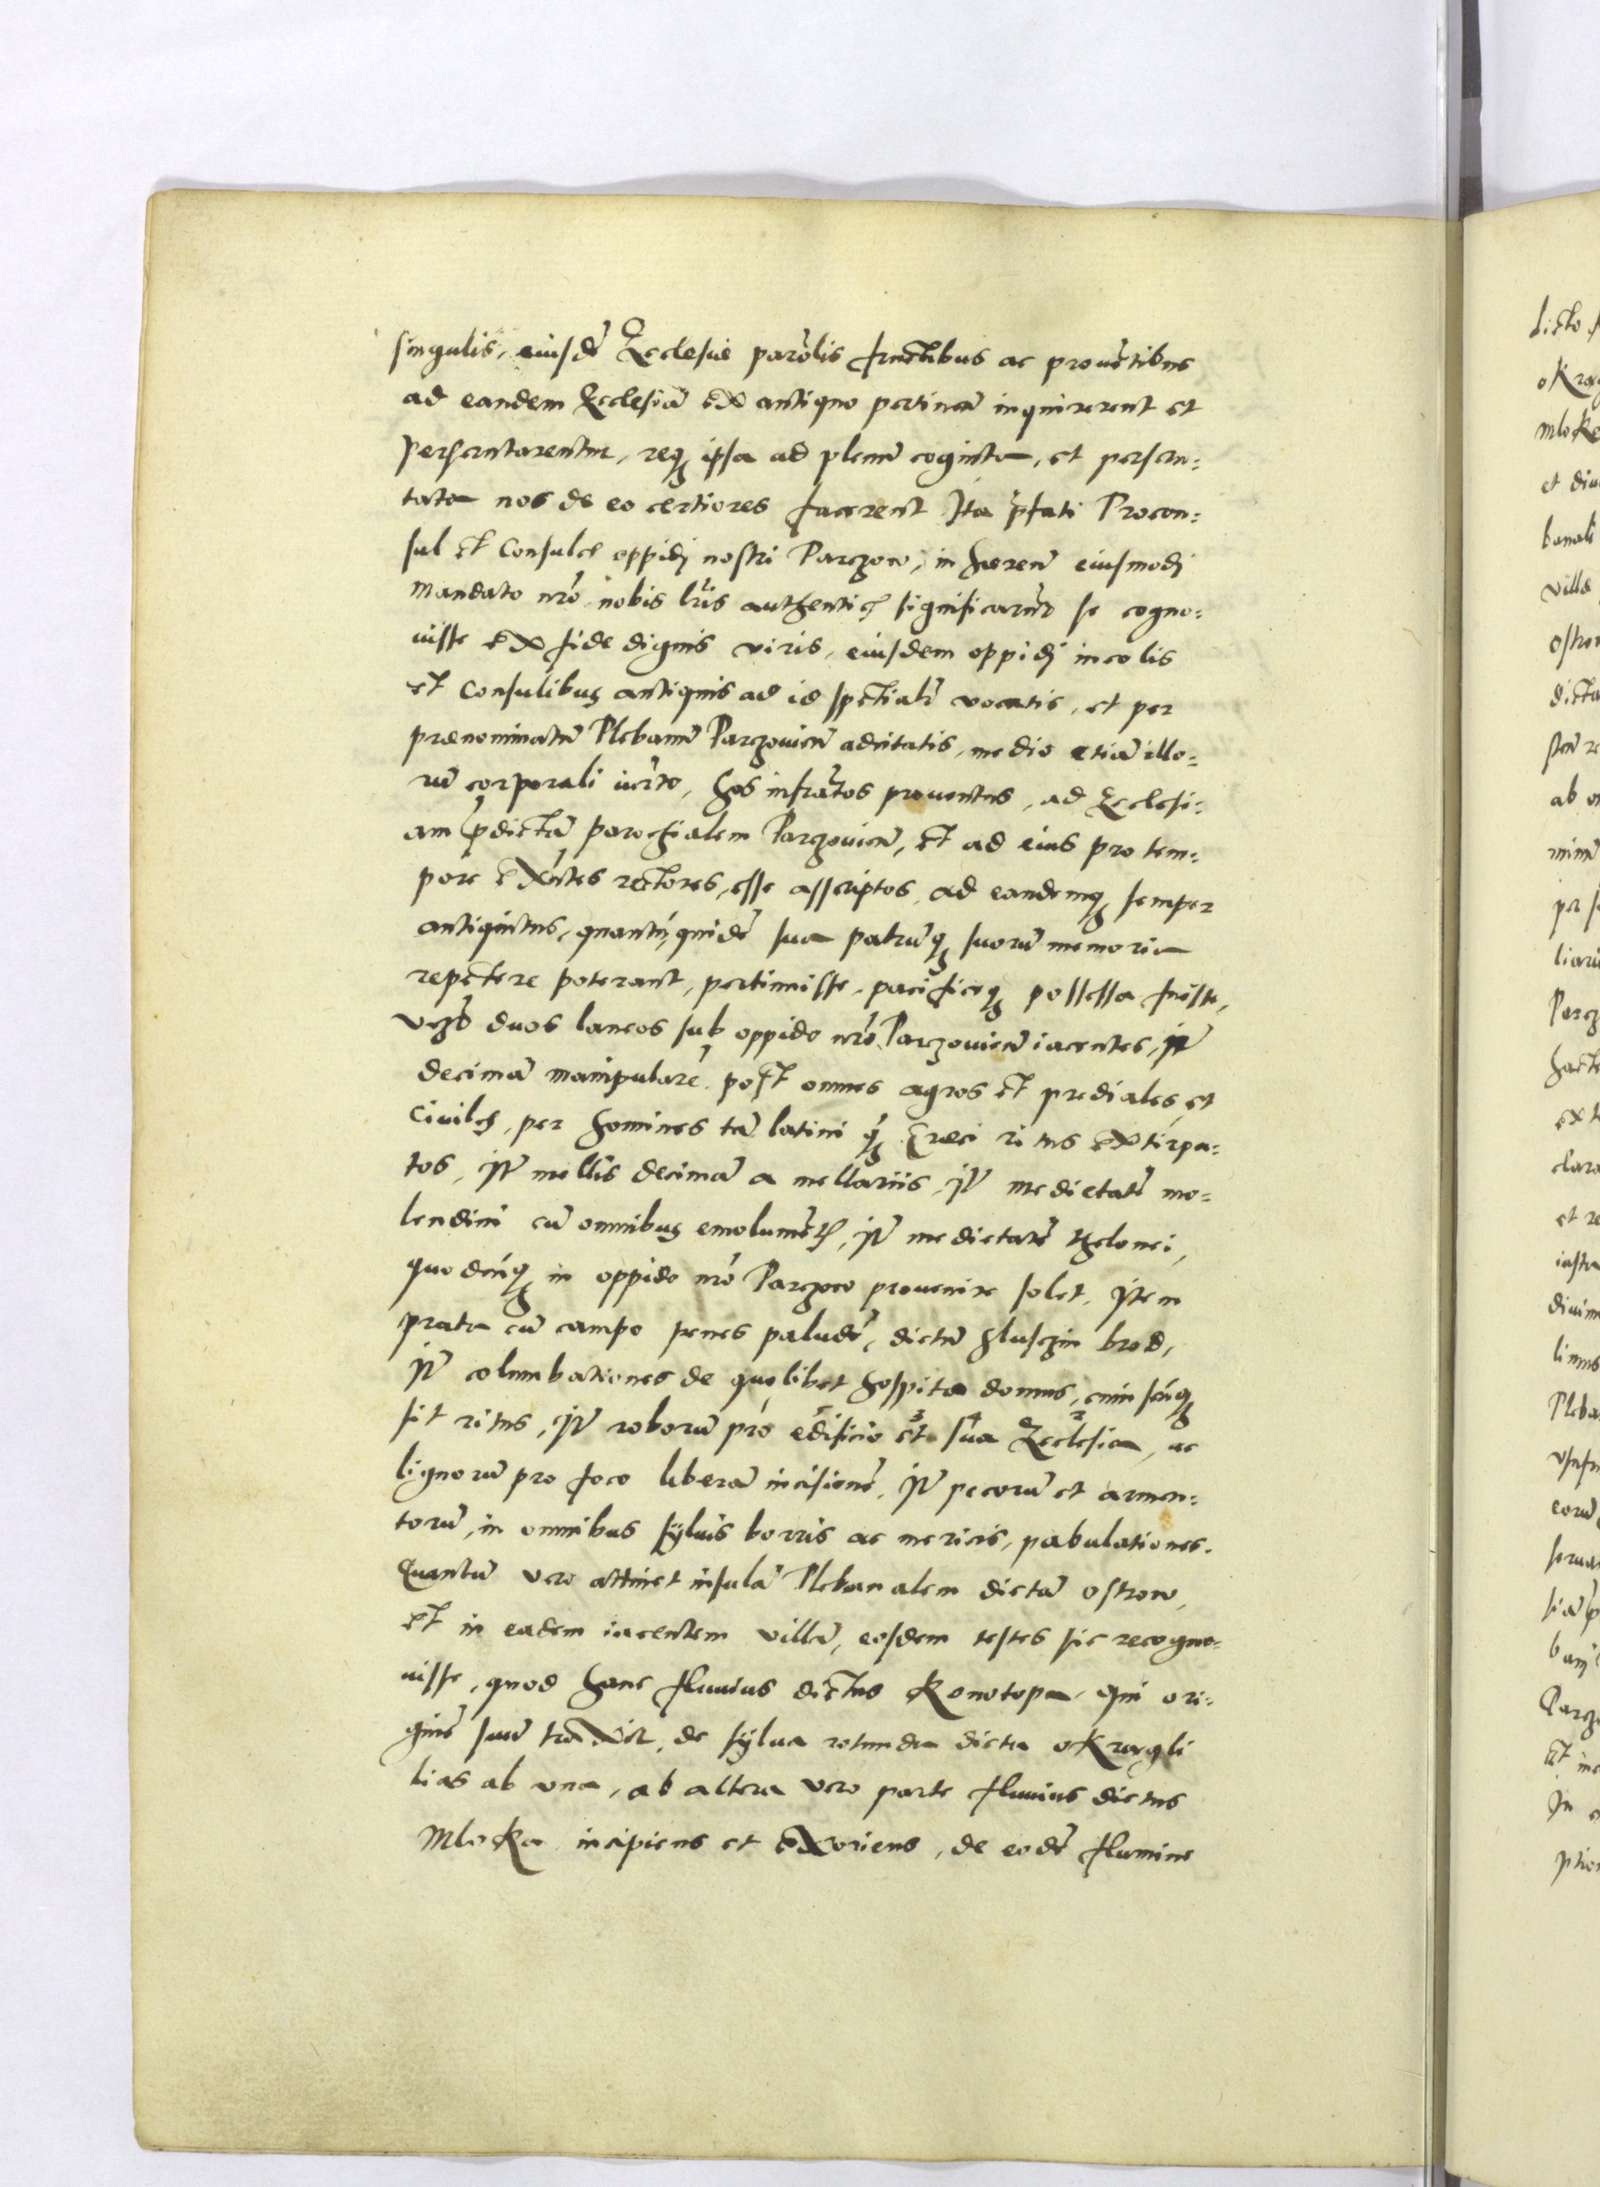 singulis, eiusdē Ecclesiæ paro͞lis fructibus ac prouētibus
ad eandem Ecclesiā ex antiquo pertineñ inquirerent et
perscrutarentur, reqꝫ ipsa ad plenū cognita, et perscru:
tata nos de eo certiores facerent Ita p̄fati Procon:
sul et Consules oppidj nostri Parczow, in hæreñ eiusmodj
mandato nr̄o nobis lr̄is authenticꝭ significarūt se cogno:
uisse ex fide dignis viris, eiusdem oppidj incolis
et Consulibus antiquis ad id spetialr̄ vocatis, et per
prænominatū Plebanū Parczouieñ adcitatis, medio etiā illo:
rū corporali iur̄to, hos infrātos prouentus, ad Ecclesi:
am p̄dictā parochialem Parczouieñ, et ad eius pro tem:
pore ex̄ntes rectores, esse asscriptos, ad eandemqꝫ semper
antiquitus, quantū quidē sua patrūqꝫ suorū memoria
repetere poterant, pertinuisse, pacificeqꝫ possessa fuisse,
vcꝫ duos laneos sub oppido nr̄o Parczouieñ iacentes, itē
decimā manipularē post omnes agros et prediales, et
Ciuiles, per homines tā latini qꝫ Græci ritus extirpa:
tos, itē mellis decimā a mellariis, itē medietatē mo:
lendini cū omnibus emolumētꝭ, itē medietatē thelonei,
quodcūqꝫ in oppido nr̄o Parczow prouenire solet, item
prata cū campo penes paludē, dictū Gluschin brod,
itē columbationes de qualibet hospita domus, cuiuscūqꝫ
sit ritus, itē roborū pro edificio et sua Ecclesia, ac
lignorū pro foco liberā incisionē, itē pecorū et armen:
torū, in omnibus syluis borris ac mericis, pabulationes.
Quantū vero attinet insulā Plebanalem dictā ostrow,
et in eadem iacentem villā, eosdem testes sic recogno:
uisse, quod hanc fluuius dictus Konotopa, qui ori:
ginē suā traxit, de sylua rotunda dicta okrągli
lias ab vna, ab altera vero parte fluuius dictus
Mloka incipiens et exoriens, de eodē flumine